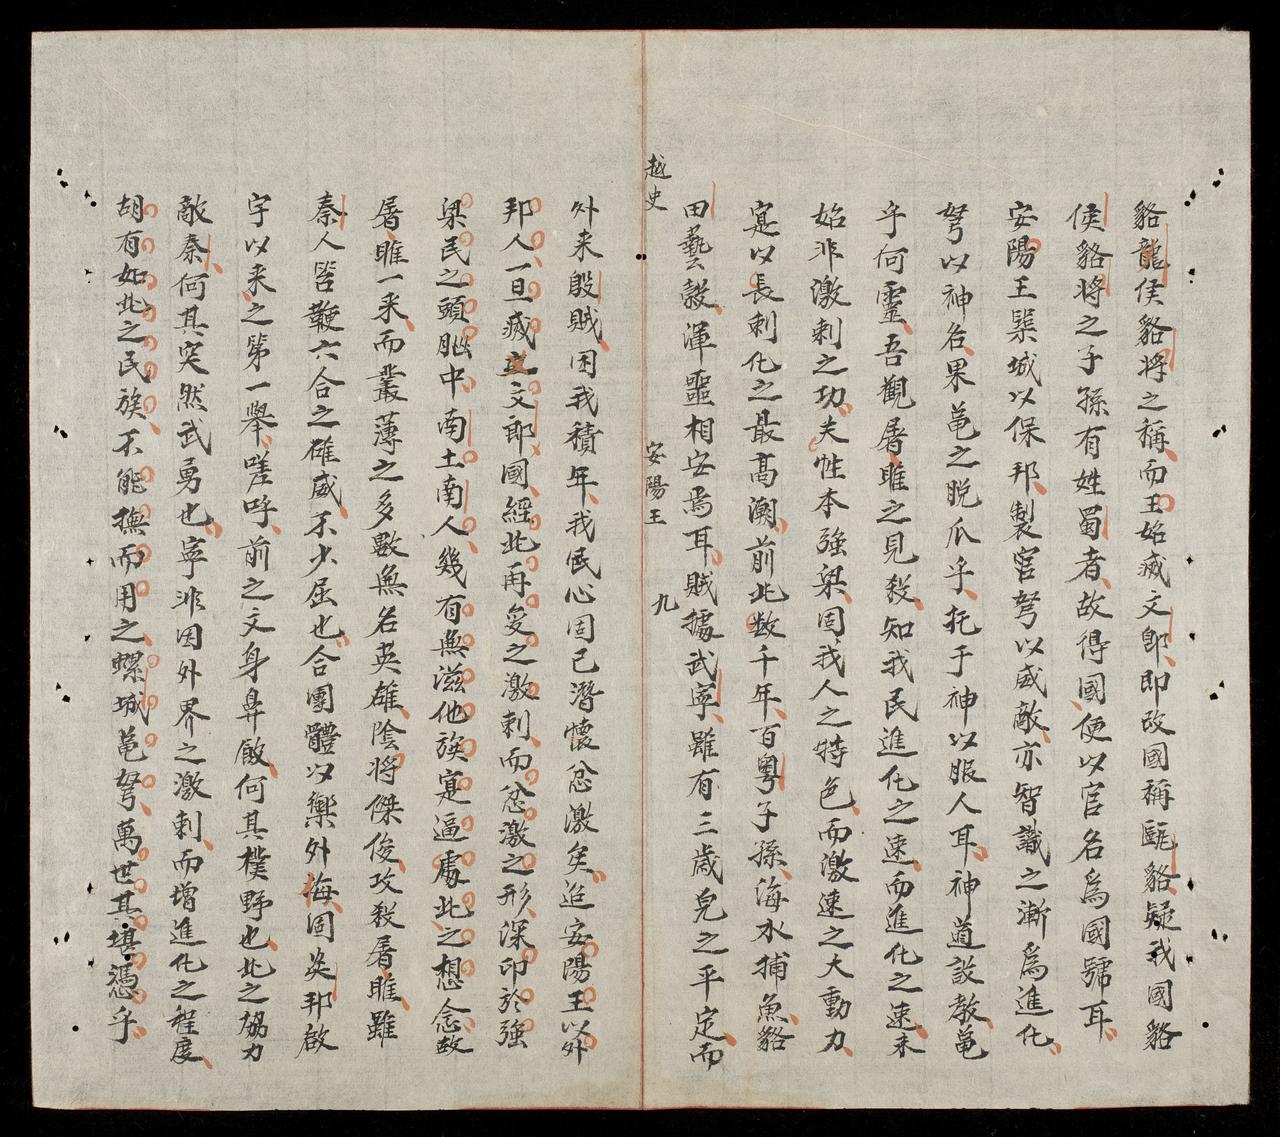 貉龍侯貉將之稱而王始㓕文郎即改國稱甌貉疑我國貉
侯貉將之子孫有姓蜀者故得國便以官名爲國號耳
安陽王築城以保邦製宮弩以威敵亦智識之漸爲進化
弩以神名果黾之脫爪乎托于神以服人耳神道設教黾
乎何靈吾觀屠睢之見殺知我民進化之速而進化之速未
始非激刺之功夫性本強梁固我人之特色而激速之大動力
寔以長刺化之最高潮前此数千年百粵子孫海水捕魚貉
田藝穀渾噩相安焉耳賊據武寧雖有三歲兒之平定而
越史
安陽王
九
外来殷賊困我積年我民心固已潛懷忿激矣迨安陽王以外
邦人一旦㓕立文郎國經此再受之激刺而忿激之形深印於強
梁民之頭腦中南土南人幾有無滋他族寔逼處此之想念故
屠睢一来而叢薄之多數無名英雄陰將傑俊攻殺屠睢雖
秦人皆鞭六合之雄威不少屈也合團體以禦外侮固炎邦啟
宇以来之第一舉嗟呼前之文身鼻飲何其樸野也此之協力
敵秦何其突然武勇也寧非因外界之激刺而增進化之程度
胡有如此之民族不能撫而用之螺城黾弩萬世其堪憑乎